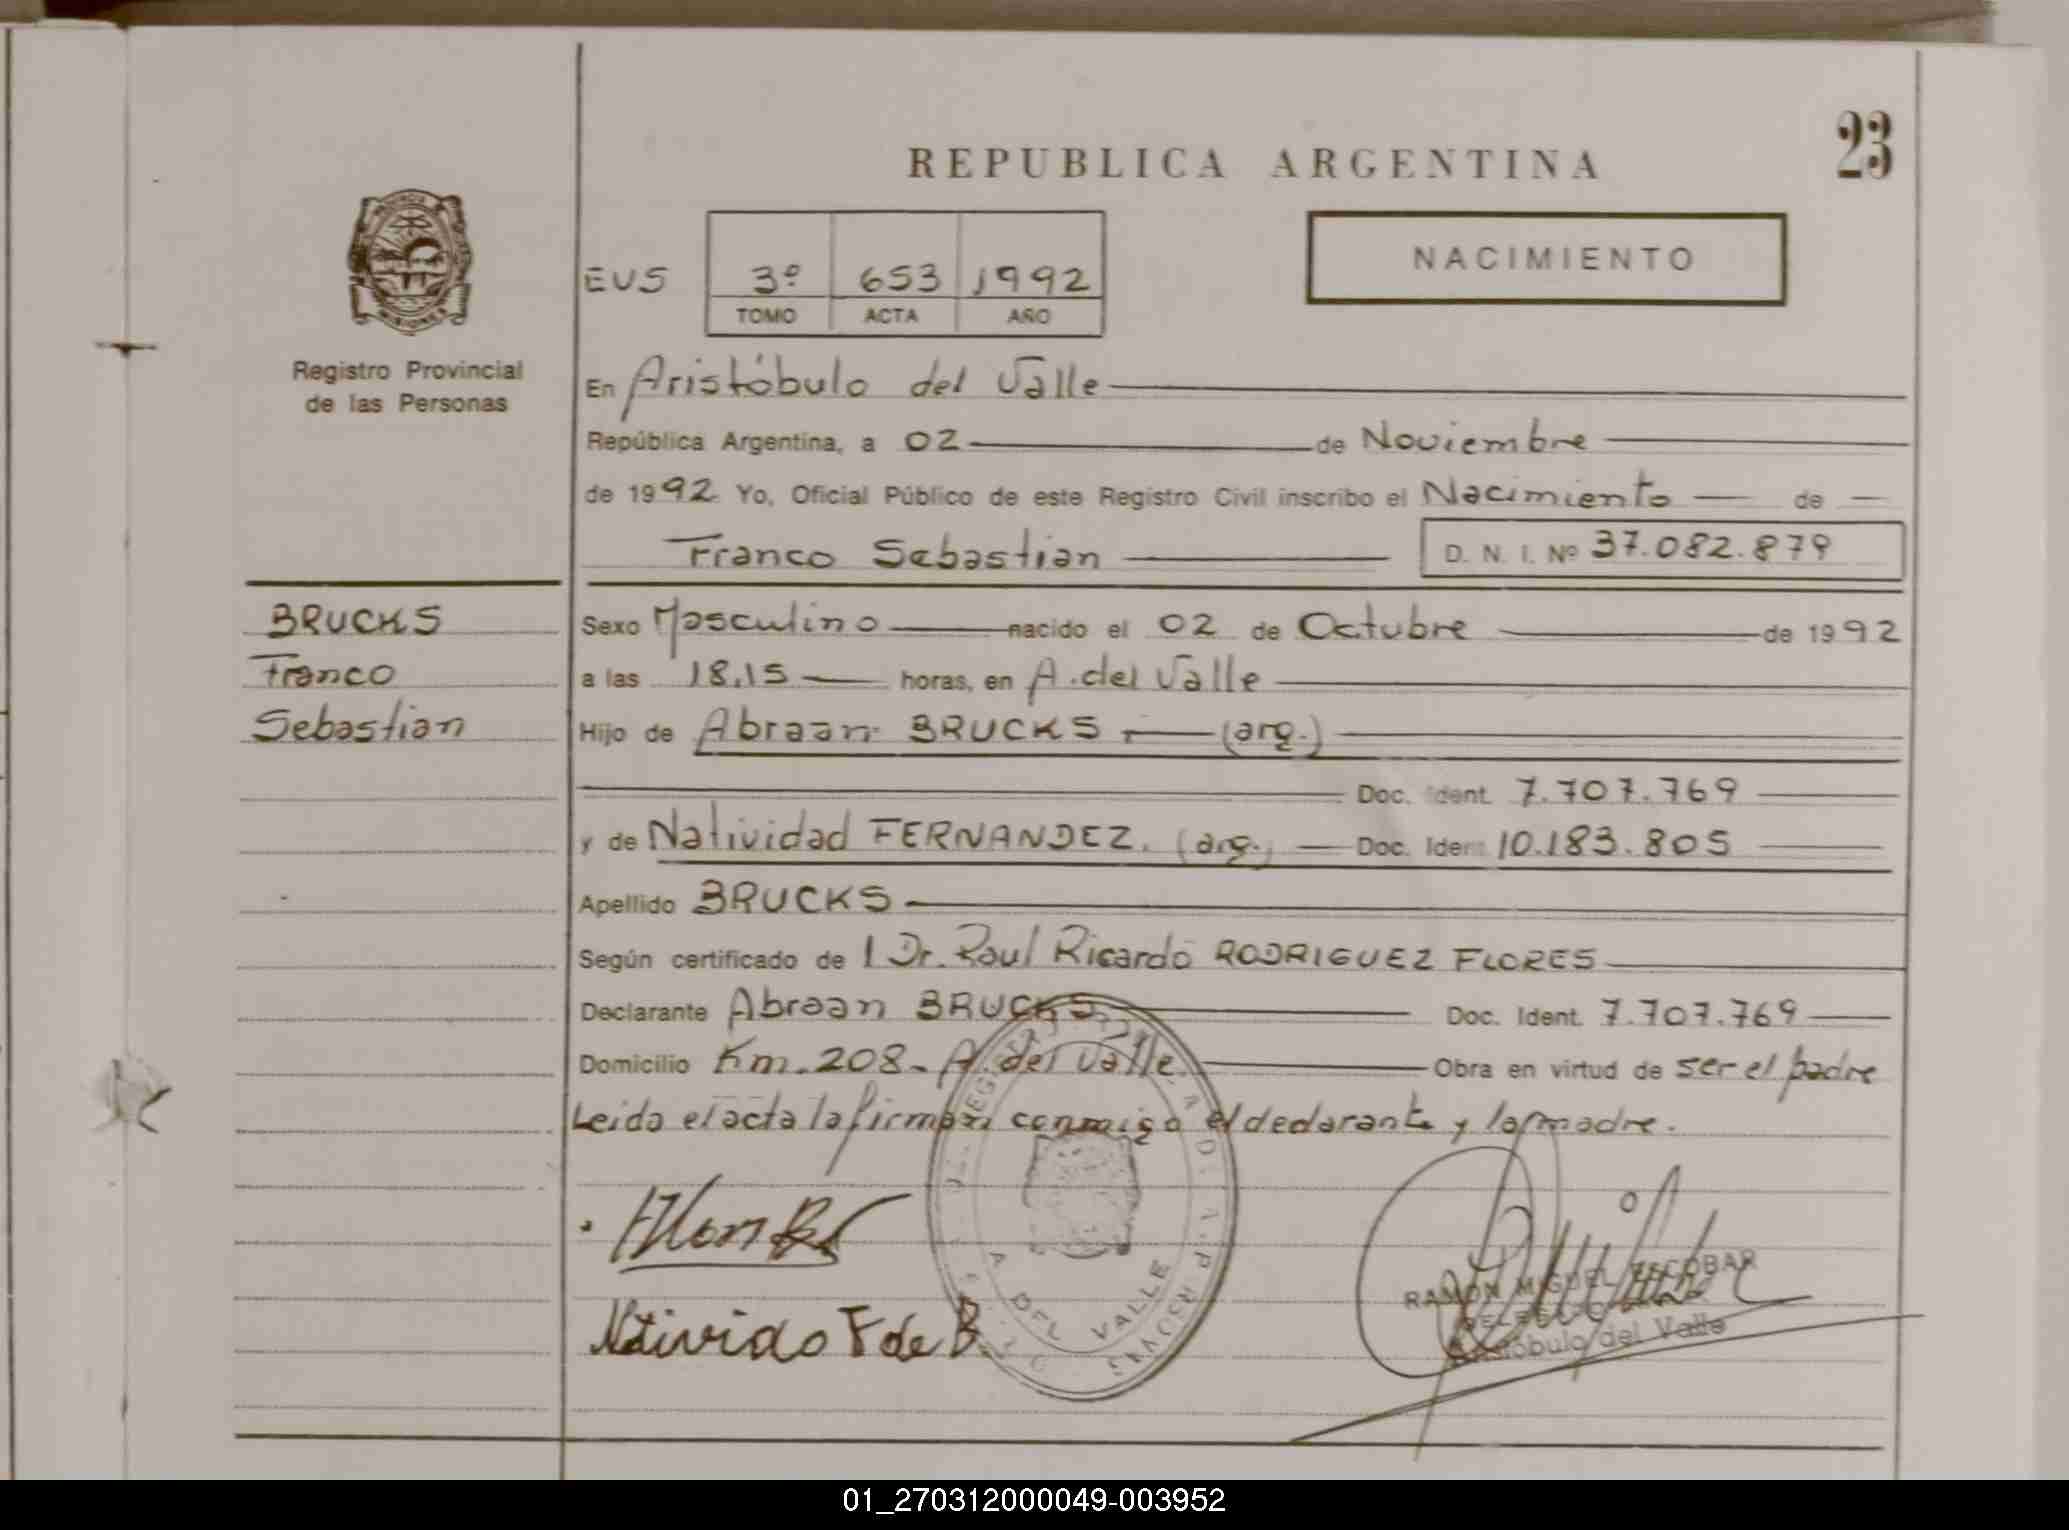 23
REPUBLICA ARGENTINA
NACIMIENTO
EUS 3º 653 1992
TOMO ACTA AÑO
MISIONES
Registro Provincial
de las Personas
En Aristóbulo del Valle
República Argentina, a 02 de Noviembre
de 1992 Yo, Oficial Público de este Registro Civil inscribo el Nacimiento de
Franco Sebastian D. N. I. Nº 37.082.879
BRUCKS
Franco
Sebastian
Sexo Masculino nacido el 02 de Octubre de 1992
a las 18,15 horas, en A. del Valle
Hijo de Abraan BRUCKS (arg.)
Doc. Ident. 7.707.769
y de Natividad FERNANDEZ. (arg.) Doc. Ident 10.183.805
Apellido BRUCKS
Según certificado de l Dr. Raul Ricardo RODRIGUEZ FLORES
Declarante Abraan BRUCKS Doc. Ident. 7.707.769
Domicilio Km. 208 - A. del Valle Obra en virtud de ser el padre
Leida el acta la firman conmigo el declarante y la madre.
Natividad F de B
A DEL VALLE
RAMON MIGUEL ESCOBAR
DELEGADO
Aristóbulo del Valle
01_270312000049-003952